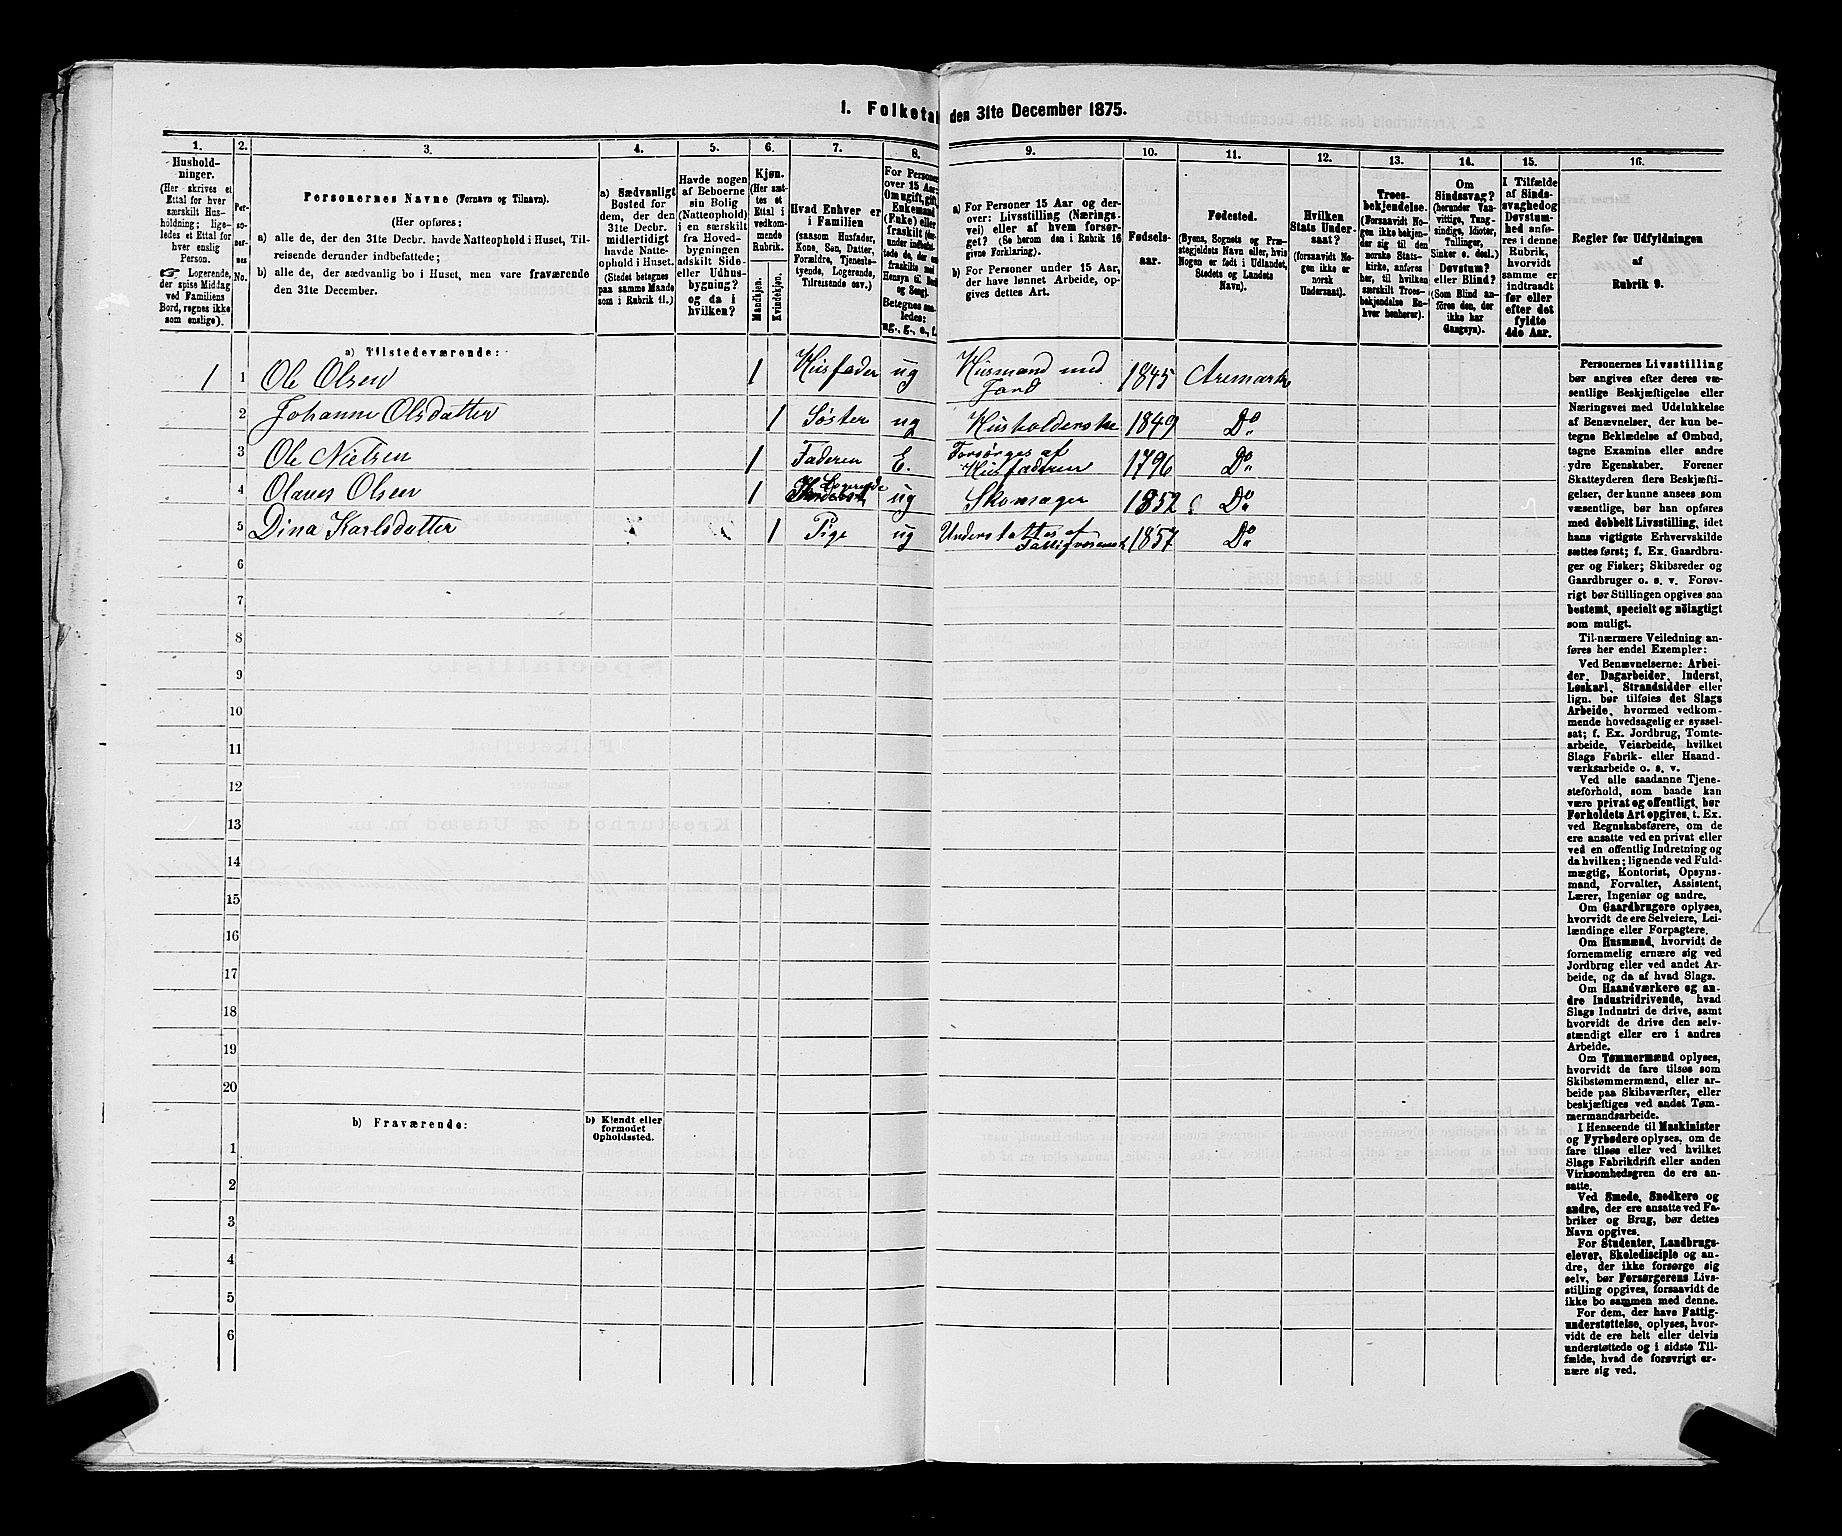 1. Folketal den 31te December 1875.
1. 2. 3. 4. 5. 6. 7. 8. 9. 10. 11. 12. 13. 14. 15. 16.
Hushold-
ninger.
(Her skrives et
Ettal for hver
særskilt Hus-
holdning; lige-
ledes et Ettal for
hver enslig
Person.
Logerende,
der spise Middag
ved Familiens
Bord, regnes ikke
som enslige).
Per-
so-
ner-
nes
No.
Personernes Navne (Fornavn og Tilnavn).
(Her opføres:
a) alle de, der den 31te Decbr. havde Natteophold i Huset, Til-
reisende derunder indbefattede;
b) alle de, der sædvanlig bo i Huset, men vare fraværende
den 31te December.
a) Sædvanligt
Bosted for
dem, der den
31te Decbr.
midlertidigt
havde Natte-
ophold i Huset.
(Stedet betegnes
paa samme Maade
som i Rubrik 11.)
Havde nogen
af Beboerne
sin Bolig
(Natteophold)
i en særskilt
fra Hoved-
bygningen
adskilt Side-
eller Udhus-
bygning?
og da i
hvilken?
Kjøn.
(Her sæt-
tes et
Ettal i
vedkom-
mende
Rubrik.
Mandkjøn.
Kvindekjøn.
Hvad Enhver er
i Familien
(saasom Husfader,
Kone, Søn, Datter,
Forældre, Tjeneste-
tyende, Logerende,
Tilreisende osv.)
For Personer
over 15 Aar:
Om ugift, gift,
Enkemand
(Enke) eller
fraskilt
Betegnes saa-
ledes:
ug., g., e., f.
a) For Personer 15 Aar og der-
over: Livsstilling (Nærings-
vei) eller af hvem forsør-
get? (Se herom den i Rubrik 16
givne Forklaring).
b) For Personer under 15 Aar,
der have lønnet Arbeide, op-
gives dettes Art.
Fødsels-
aar.
Fødested.
(Byens, Sognets og Præ-
stegjeldets Navn eller, hvis
Nogen er født i Udlandet,
Stedets og Landets
Navn).
Hvilken
Stats Under-
saat?
(forsaavidt No-
gen ikke er
norsk
Undersaat).
Troes-
bekjendelse.
(Forsaavidt No-
gen ikke bekjen-
der sig til den
norske Stats-
kirke, anføres
her, til hvilken
særskilt Troes-
bekjendelse En-
hver henhører).
Om
Sindssvag?
(herunder Van-
vittige, Tung-
sindige, Idioter,
Tullinger,
Sinker o. desl.)
Døvstum?
eller Blind?
(Som Blind an-
føres den, der
ikke har
Gangsyn).
I Tilfælde
af Sinds-
svaghed og
Døvstum-
hed anfø-
res i denne
Rubrik,
hvorvidt
samme er
indtraadt
før eller
efter det
fyldte
4de Aar.
Regler for Udfyldningen
af
Rubrik 9.
a) Tilstedeværende:
1 1 Ole Olsen 1 Husfader ug Husmand med Jord 1845 Aremark
2 Johanne Olsdatter 1 Søster ug Husholderske 1849 Do
3 Ole Nielsen 1 Faderen E. Forsørges af Husfaderen 1796 Do
4 Olaves Olsen 1 Logerende ug Skomager 1852 Do
5 Dina Karlsdatter 1 Pige ug Understøttes af Fattigvæsenet 1857 Do
6
7
8
9
10
11
12
13
14
15
16
17
18
19
20
b) Fraværende:
b) Kjendt eller
formodet
Opholdssted.
1
2
3
4
5
6
Personernes Livsstilling
bør angives efter deres væ-
sentlige Beskjæftigelse eller
Næringsvei med Udelukkelse
af Benævnelser, der kun be-
tegne Beklædelse af Ombud,
tagne Examina eller andre
ydre Egenskaber. Forener
Skatteyderen flere Beskjæfti-
gelser, der kunne ansees som
væsentlige, bør han opføres
med dobbelt Livsstilling, idet
hans vigtigste Erhvervskilde
sættes først; f. Ex. Gaardbru-
ger og Fisker; Skibsreder og
Gaardbruger o. s. v. Forøv-
rigt bør Stillingen opgives saa
bestemt, specielt og nøiagtigt
som muligt.
Til nærmere Veiledning an-
føres her endel Exempler:
Ved Benævnelserne: Arbei-
der, Dagarbeider, Inderst,
Løskarl, Strandsidder eller
lign. bør tilføies det Slags
Arbeide, hvormed vedkom-
mende hovedsagelig er syssel-
sat; f. Ex. Jordbrug, Tomte-
arbeide, Veiarbeide, hvilket
Slags Fabrik- eller Haand-
værksarbeide o. s. v.
Ved alle saadanne Tjene-
steforhold, som baade kan
være privat og offentligt, bør
Forholdets Art opgives, t. Ex.
ved Regnskabsførere, om de
ere ansatte ved en privat eller
ved en offentlig Indretning og
da hvilken; lignende ved Fuld-
mægtig, Kontorist, Opsyns-
mand, Forvalter, Assistent,
Lærer, Ingeniør og andre.
Om Gaardbrugere oplyses,
hvorvidt de ere Selveiere, Lei-
lændinge eller Forpagtere.
Om Husmænd, hvorvidt de
fornemmelig ernære sig ved
Jordbrug eller ved andet Ar-
beide, og da af hvad Slags.
Om Haandværkere og an-
dre Industridrivende, hvad
Slags Industri de drive, samt
hvorvidt de drive den selv-
stændigt eller ere i andres
Arbeide.
Om Tømmermænd oplyses,
hvorvidt de fare tilsøs som
Skibstømmermænd, eller ar-
beide paa Skibsværfter, eller
beskjæftiges ved andet Tøm-
mermandsarbeide.
I Henseende til Maskinister
og Fyrbødere oplyses, om de
fare tilsøs eller ved hvilket
Slags Fabrikdrift eller anden
Virksomhedsgren de ere an-
satte.
Ved Smede, Snedkere og
andre, der ere ansatte ved Fa-
briker og Brug, bør dettes
Navn opgives.
For Studenter, Landbrugs-
elever, Skoledisciple og an-
dre, der ikke forsørge sig
selv, bør Forsørgerens Livs-
stilling opgives, forsaavidt de
ikke bo sammen med denne.
For dem, der have Fattig-
understøttelse, oplyses, hvor-
vidt de ere helt eller delvis
understøttede og i sidste Til-
fælde, hvad de forøvrigt er-
nære sig ved.